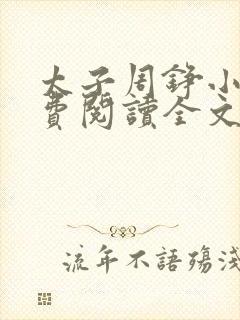 太子周錚小
費閱讀全文
流年不語殤淺